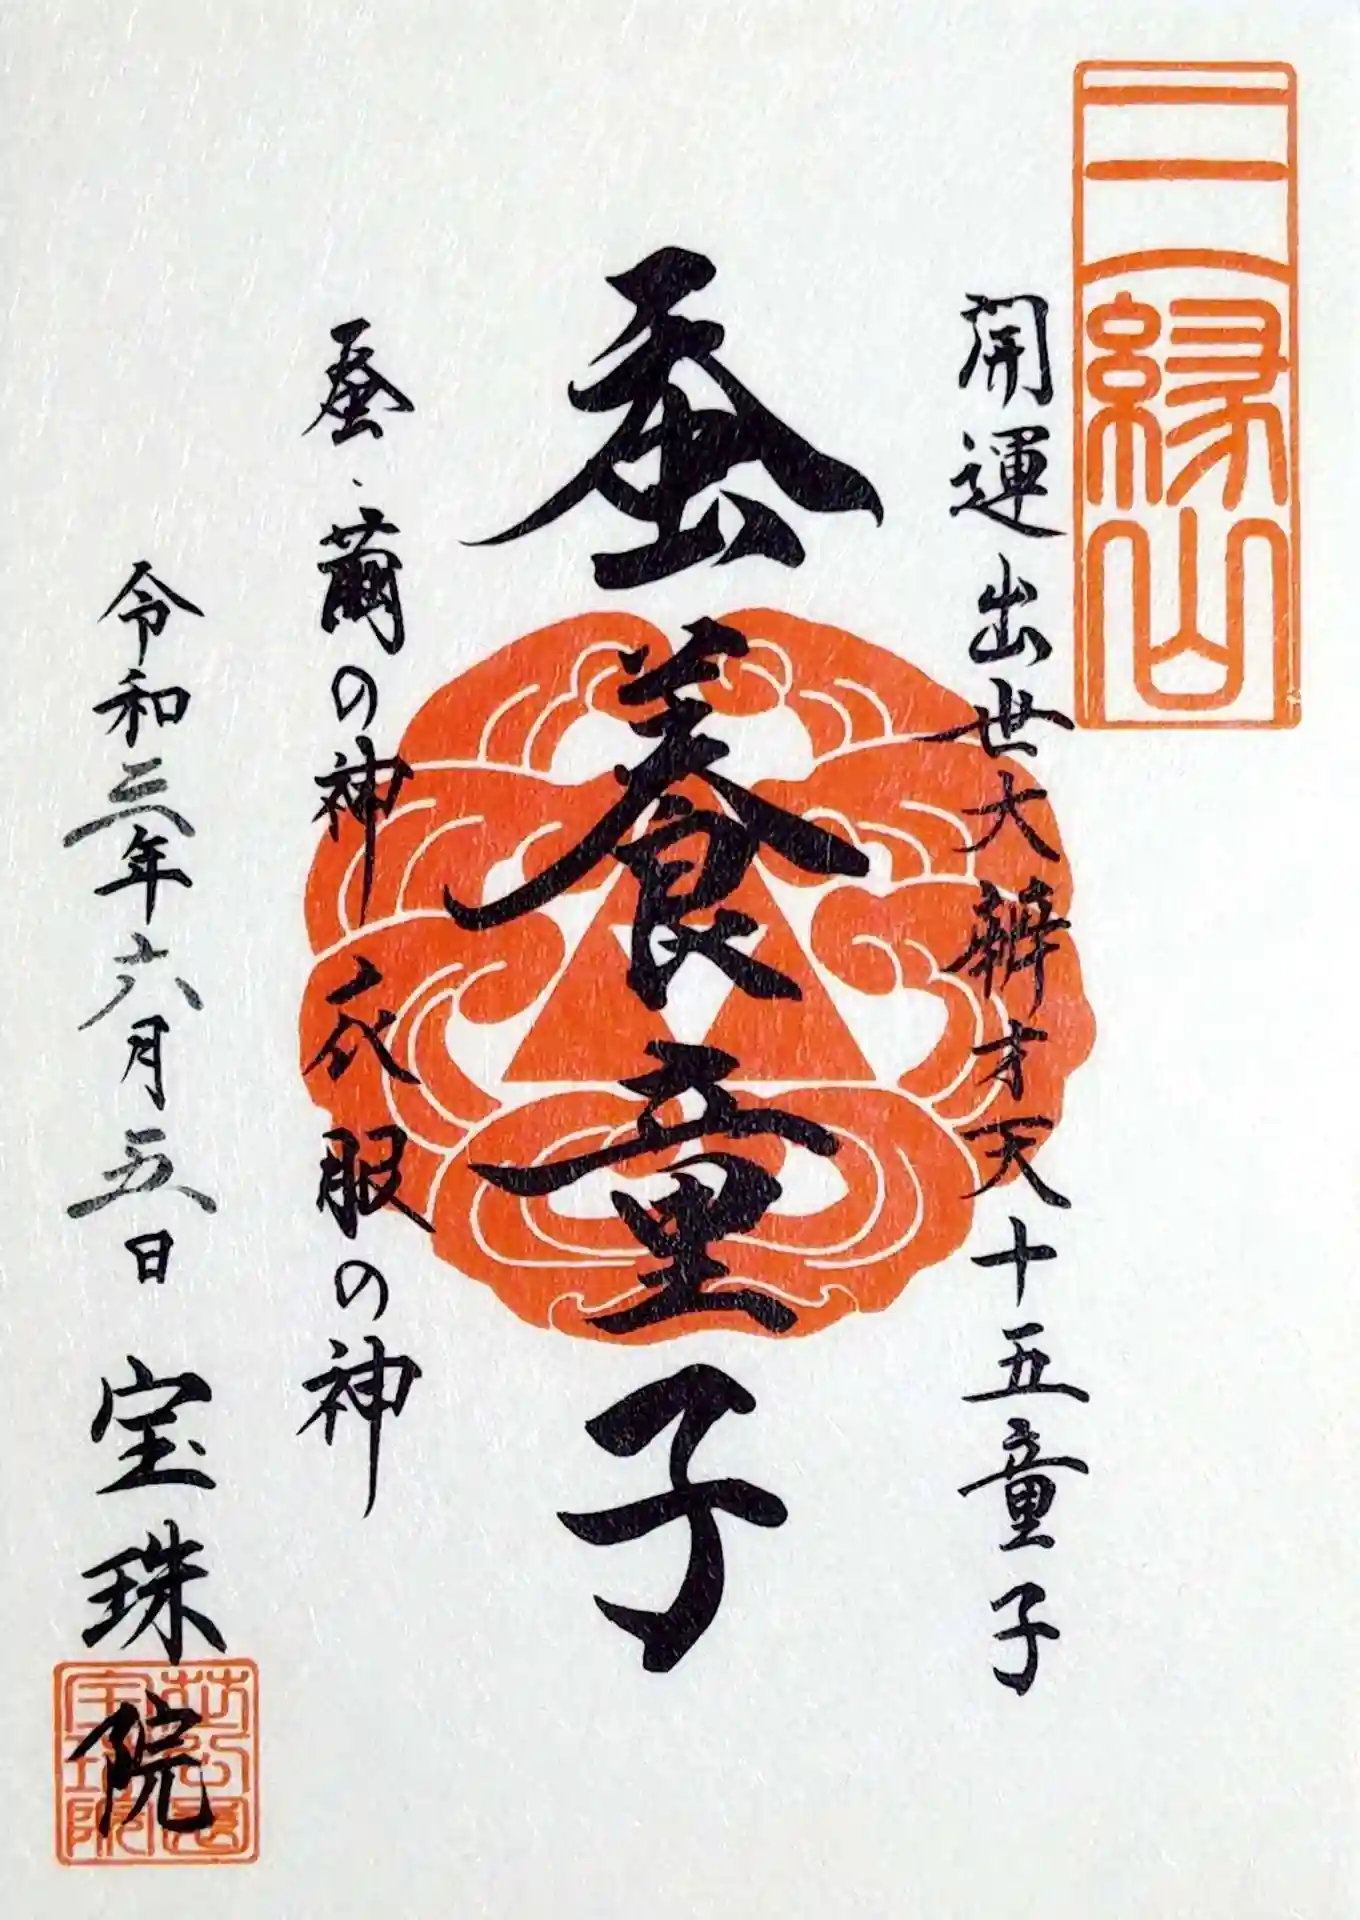 三縁山
開運出世大辨才天十五童子
蚕養童子
蚕・繭の神 衣服の神
令和三年六月五日 宝珠院
芝公園
宝珠院